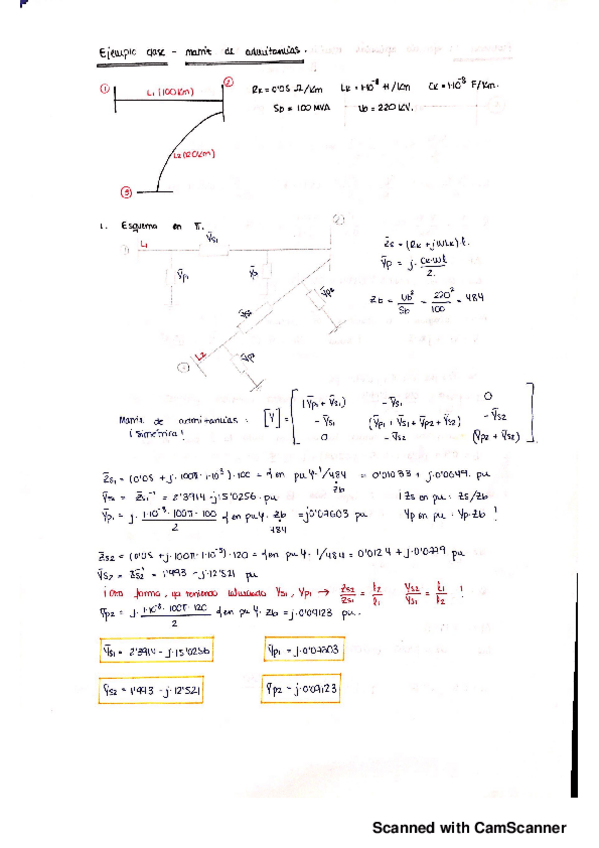 Ejemplo clase - matriz de admitancias.
① ② L1 (100Km) Rk = 0'05 Ω/Km Lk = 1·10⁻³ H/Km Ck = 1·10⁻⁸ F/Km.
Sb = 100 MVA Ub = 220 KV.
L2 (120Km)
③
1. Esquema en π.
① L1 Ȳs1 ②
Z̄s = (Rk + jωLk) l.
Ȳp1 Ȳp1 Ȳp = j· Ck·ω·l / 2.
Ȳs2 Ȳp2 Zb = Ub² / Sb = 220² / 100 = 484
③ L2 Ȳp2
Matriz de admitancias: [Y] = [ (Ȳp1 + Ȳs1) -Ȳs1 0
¡simétrica! -Ȳs1 (Ȳp1 + Ȳs1 + Ȳp2 + Ȳs2) -Ȳs2
0 -Ȳs2 (Ȳp2 + Ȳs2) ]
Z̄s1 = (0'05 + j·100π·1·10⁻³)·100 = en pu · 1/484 = 0'01033 + j·0'0649. pu
Zb
Z̄s1⁻¹ = 2'3914 - j·15'0256. pu ! Zs en pu: Zs/Zb
Ȳp1 = j· 1·10⁻⁸·100π·100 / 2 en pu · Zb = j0'07603 pu Yp en pu: Yp·Zb !
484
Z̄s2 = (0'05 + j·100π·1·10⁻³)·120 = en pu · 1/484 = 0'0124 + j·0'0779 pu
Ȳs2 = Z̄s2⁻¹ = 1'993 - j·12'521 pu
¡ Otra forma, ya teniendo calculado Ys1, Yp1 → Zs2/Zs1 = l2/l1 Ys2/Ys1 = l1/l2 !
Ȳp2 = j· 1·10⁻⁸·100π·120 / 2 en pu · Zb = j·0'09123 pu.
Ȳs1 = 2'3914 - j·15'0256 Ȳp1 = j·0'07603
Ȳs2 = 1'993 - j·12'521 Ȳp2 = j·0'09123
Scanned with CamScanner